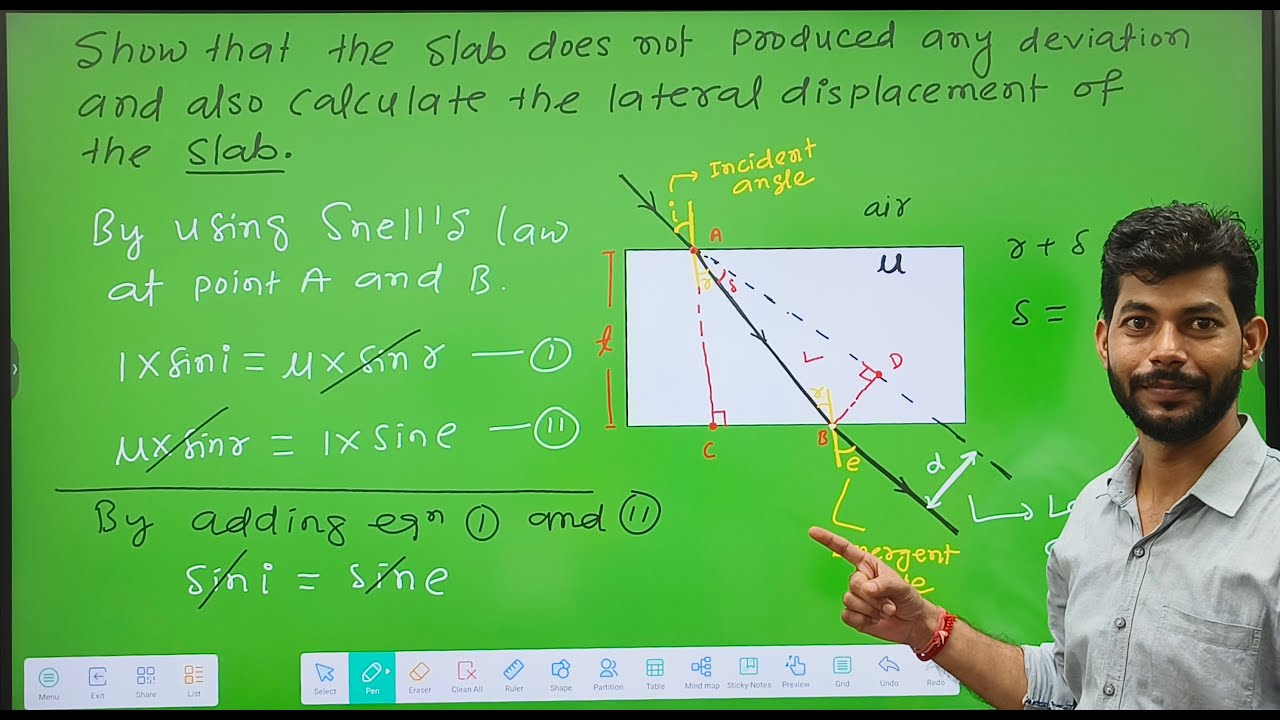 Show that the slab does not produced any deviation
and also calculate the lateral displacement of
the slab.
By using Snell's law
at point A and B.
1 × sin i = μ × sin r — (I)
μ × sin r = 1 × sin e — (II)
By adding eqⁿ (I) and (II)
sin i = sin e
Incident
angle
i
air
A
μ
r
δ
t
D
r
B
C
e
d
r + δ
δ =
Menu
Exit
Share
List
Select
Pen
Eraser
Clean All
Ruler
Shape
Partition
Table
Mind map
Sticky-Notes
Preview
Grid
Undo
Redo